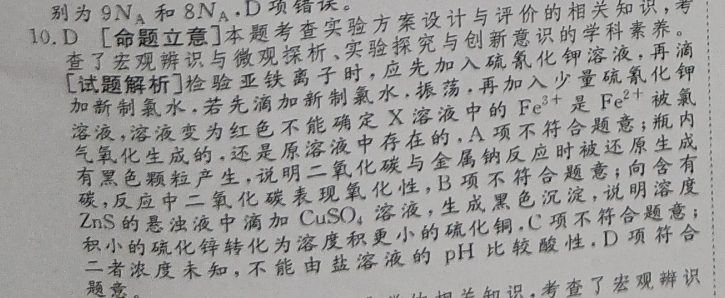 别为 9N_A 和 8N_A,D项错误。
10.D [命题立意]本题考查实验方案设计与评价的相关知识,考
查了宏观辨识与微观探析、实验探究与创新意识的学科素养。
[试题解析]检验亚铁离子时,应先加入硫氰化钾溶液,再滴
加新制氯水,若先滴加新制氯水,振荡,再加入少量硫氰化钾
溶液,溶液变为红色不能确定 X 溶液中的 Fe³⁺ 是 Fe²⁺ 被氯
气氧化生成的,还是原溶液中存在的,A 项不符合题意;瓶内
有黑色颗粒产生,说明二氧化碳与金属钠反应时被还原生成
碳,反应中二氧化碳表现氧化性,B 项不符合题意;向含有
ZnS 的悬浊液中滴加 CuSO₄ 溶液,生成黑色沉淀,说明溶度
积小的硫化锌转化为溶度积更小的硫化铜,C 项不符合题意;
二者浓度未知,不能由盐溶液的 pH 比较酸性,D 项符合
题意。
相关知识,考查了宏观辨识